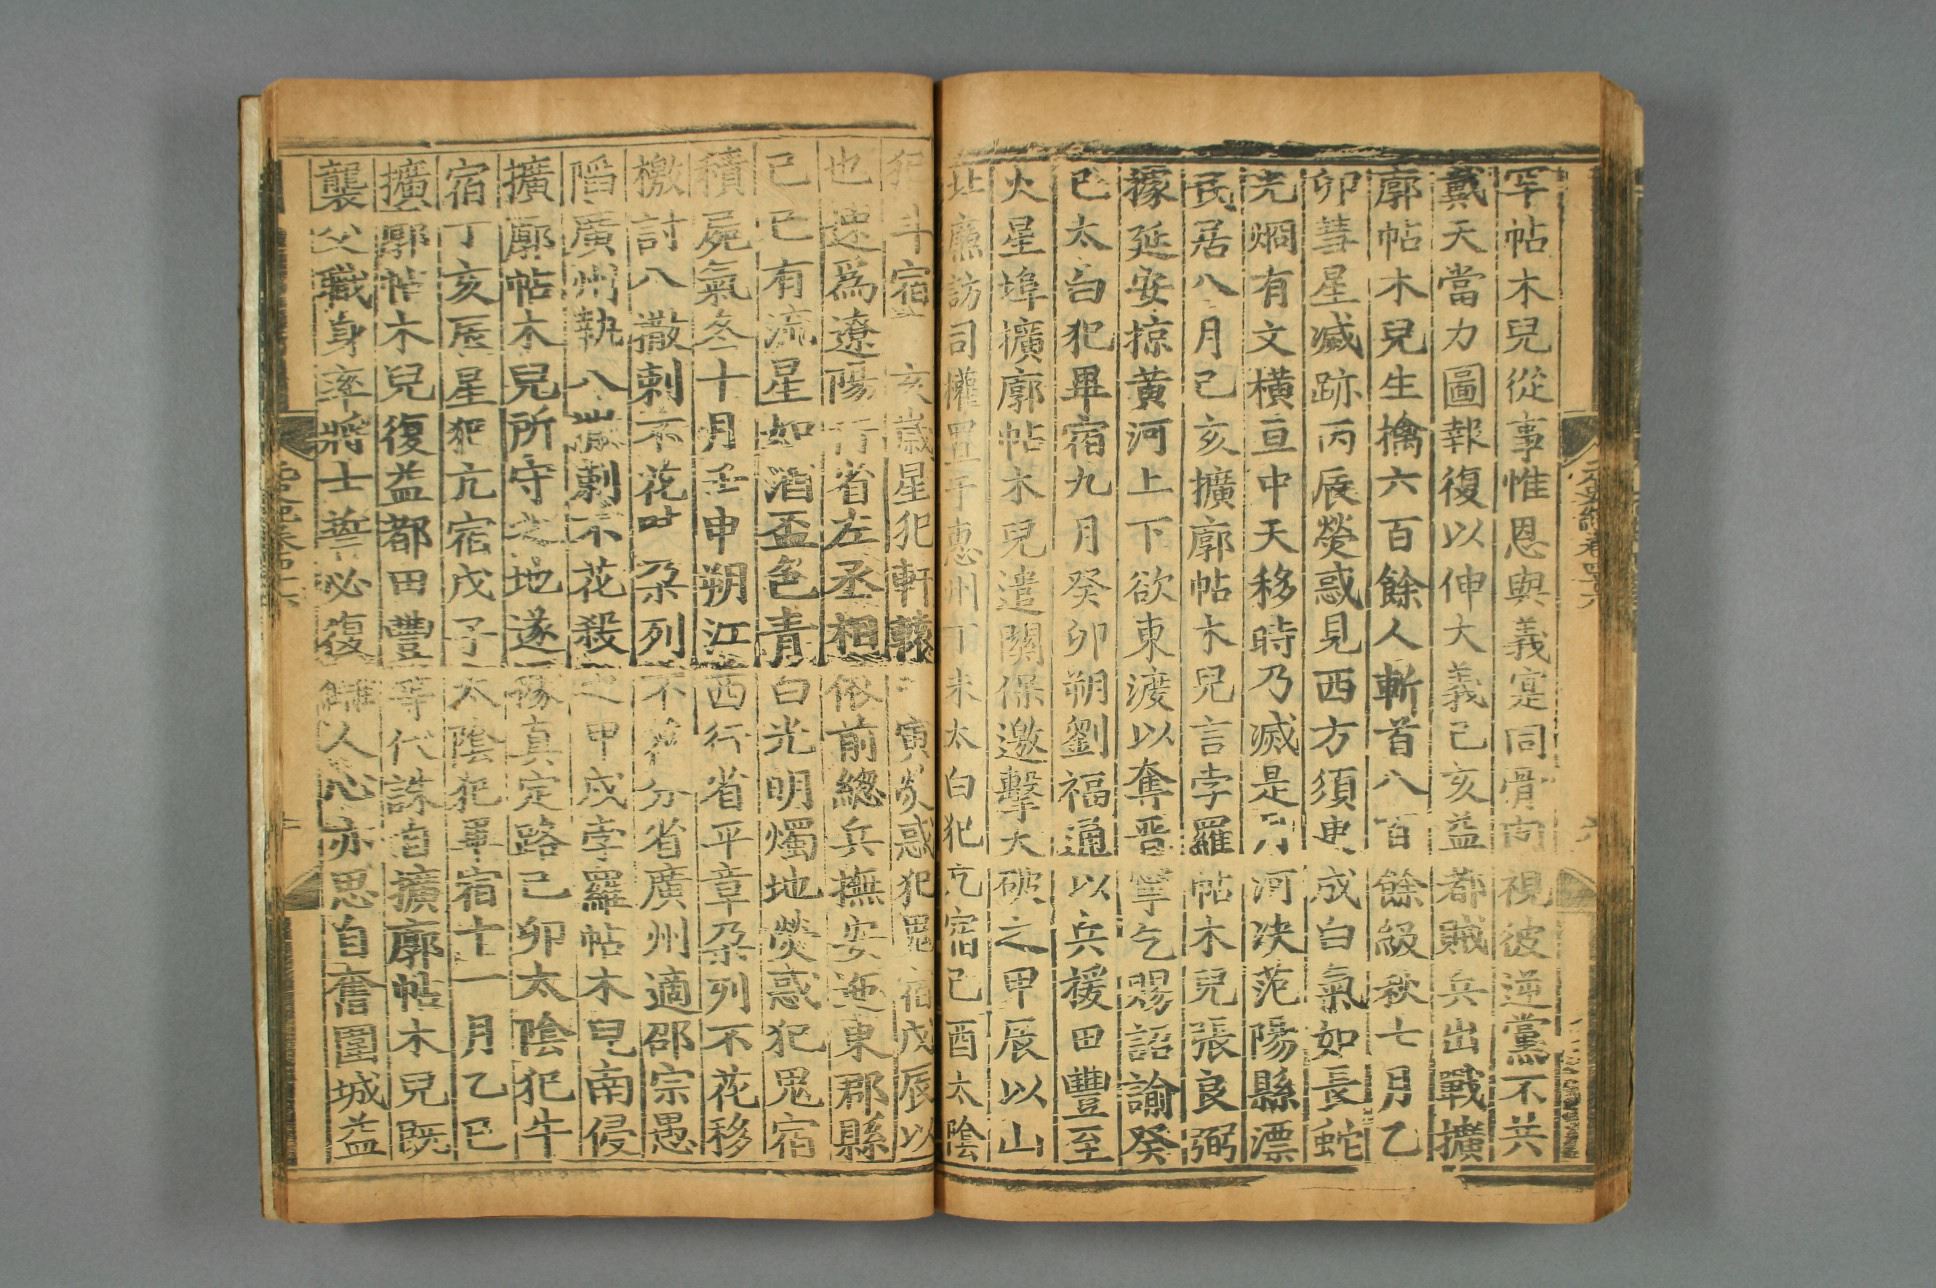 罕帖木兒從事惟恩與義寔同骨肉視彼逆黨不共
戴天當力圖報復以伸大義己亥益都賊兵出戰擴
廓帖木兒生擒六百餘人斬首八百餘級秋七月乙
卯彗星滅跡丙辰熒惑見西方須臾成白氣如長蛇
光焖有文橫亘中天移時乃滅是月河决范陽縣漂
民居八月己亥擴廓帖木兒言孛羅帖木兒張良弼
據延安掠黃河上下欲東渡以奪晋寧乞賜詔諭癸
巳太白犯畢宿九月癸卯朔劉福通以兵援田豐至
火星埠擴廓帖木兒遣關保邀擊大破之甲辰以山
北廉訪司權置于惠州丁未太白犯亢宿己酉太陰
犯斗宿 亥歲星犯軒轅 寅熒惑犯鬼宿戊辰以
也速爲遼陽行省左丞相 俗前總兵撫安迤東郡縣
己巳有流星如酒盃色青白光明燭地熒惑犯鬼宿
積屍氣冬十月壬申朔江西行省平章朵列不花移
檄討八撒剌不花 朵列不花分省廣州適邵宗愚
陷廣州執八撒剌不花殺之甲戌孛羅帖木兒南侵
擴廓帖木兒所守之地遂 據真定路己卯太陰犯牛
宿丁亥辰星犯亢宿戊子太陰犯畢宿十一月乙巳
擴廓帖木兒復益都田豐等代誅自擴廓帖木兒旣
襲父職身率將士誓必復讎人心亦思自奮圍城益
元史紀卷四十六